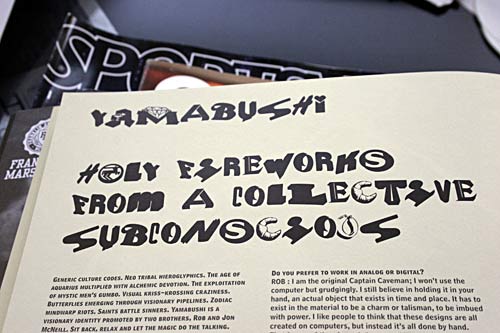 SPORTS
FRAN
MARS
YAMABUSHI
HOLY FIREWORKS
FROM A COLLECTIVE
SUBCONSCIOUS
GENERIC CULTURE CODES. NEO TRIBAL HIEROGLYPHICS. THE AGE OF
AQUARIUS MULTIPLIED WITH ALCHEMIC DEVOTION. THE EXPLOITATION
OF MYSTIC MEN'S GUMBO. VISUAL KRISS-KROSSING CRAZINESS.
BUTTERFLIES EMERGING THROUGH VISIONARY PIPELINES. ZODIAC
MINDWARP RIOTS. SAINTS BATTLE SINNERS. YAMABUSHI IS A
VISIONARY IDENTITY PROMOTED BY TWO BROTHERS, ROB AND JON
MCNEILL. SIT BACK, RELAX AND LET THE MAGIC DO THE TALKING.
DO YOU PREFER TO WORK IN ANALOG OR DIGITAL?
ROB : I am the original Captain Caveman; I won't use the
computer but grudgingly. I still believe in holding it in your
hand, an actual object that exists in time and place. It has to
exist in the material to be a charm or talisman, to be imbued
with power. I like people to think that these designs are all
created on computers, but instead it's all done by hand.